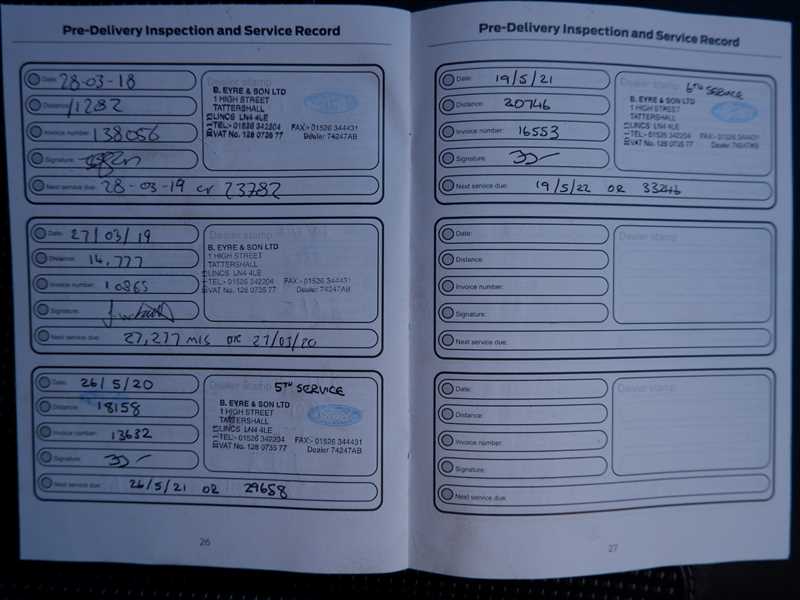 Pre-Delivery Inspection and Service Record
Date: 28-03-18
Distance: 11282
Invoice number: 138056
Signature:
Next service due: 28-03-19 or 23782
Dealer stamp
B. EYRE & SON LTD
1 HIGH STREET
TATTERSHALL
LINCS LN4 4LE
TEL:- 01526 342204 FAX:- 01526 344431
VAT No. 128 0735 77 Dealer 74247AB
Date: 27/03/19
Distance: 14,777
Invoice number: 10865
Signature:
Next service due: 27,277 MLS OR 27/03/20
Dealer stamp
B. EYRE & SON LTD
1 HIGH STREET
TATTERSHALL
LINCS LN4 4LE
TEL:- 01526 342204 FAX:- 01526 344431
VAT No. 128 0735 77 Dealer 74247AB
Date: 26/5/20
Distance: 18158
Invoice number: 13632
Signature:
Next service due: 26/5/21 OR 29658
Dealer stamp 5TH SERVICE
B. EYRE & SON LTD
1 HIGH STREET
TATTERSHALL
LINCS LN4 4LE
TEL:- 01526 342204 FAX:- 01526 344431
VAT No. 128 0735 77 Dealer 74247AB
Ford
26
Pre-Delivery Inspection and Service Record
Date: 19/5/21
Distance: 20746
Invoice number: 16553
Signature:
Next service due: 19/5/22 OR 33246
Dealer stamp 6TH SERVICE
B. EYRE & SON LTD
1 HIGH STREET
TATTERSHALL
LINCS LN4 4LE
TEL:- 01526 342204 FAX:- 01526 344431
VAT No. 128 0735 77 Dealer
Date:
Distance:
Invoice number:
Signature:
Next service due:
Dealer stamp
Date:
Distance:
Invoice number:
Signature:
Next service due:
Dealer stamp
27